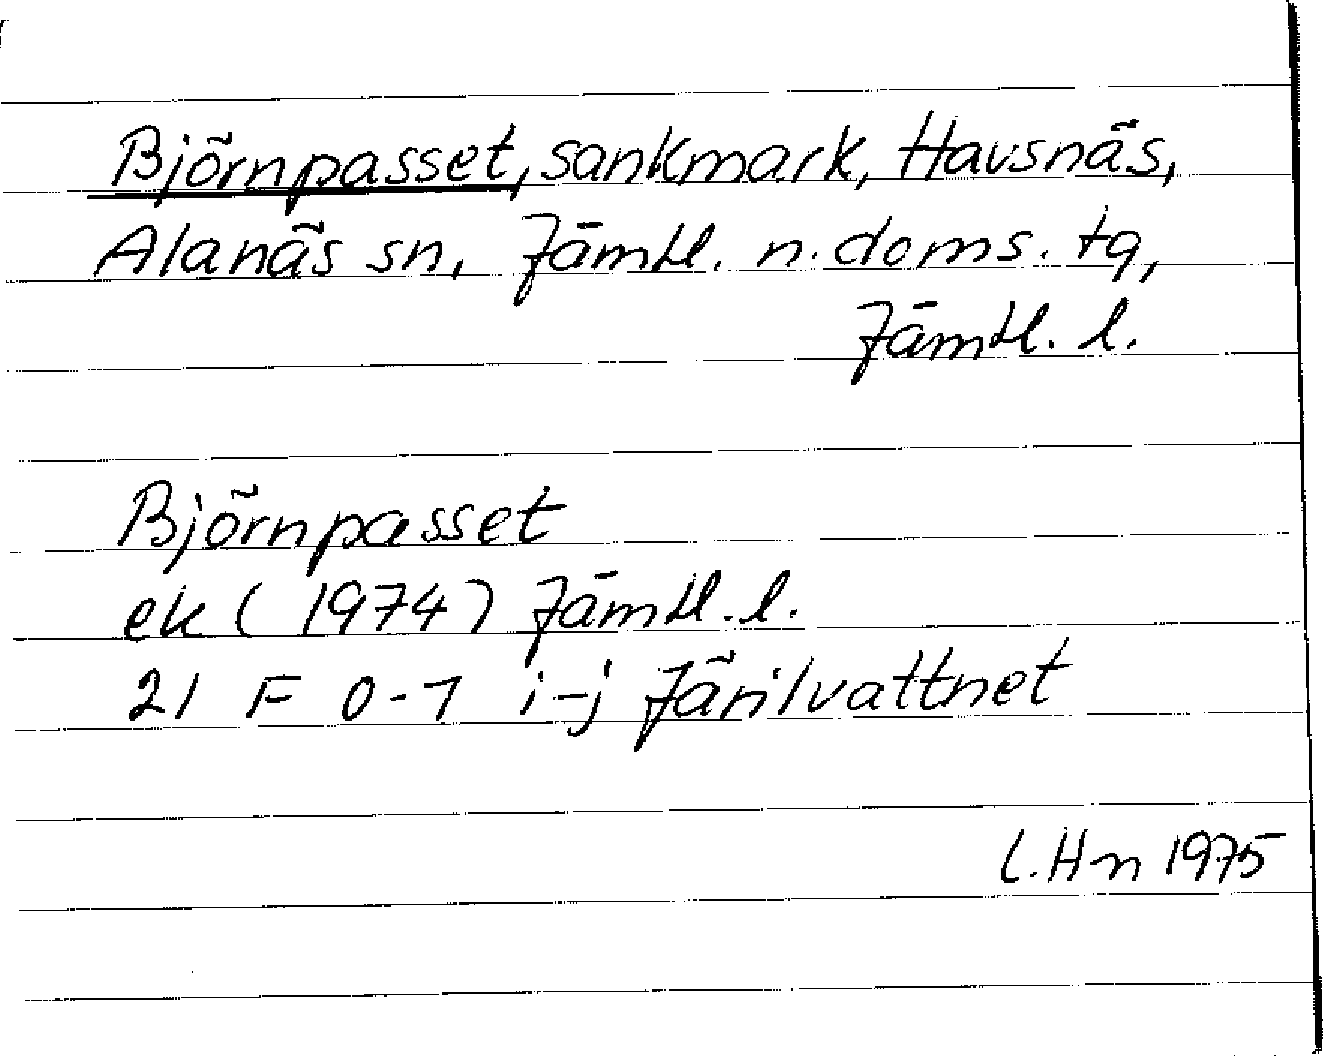 Björnpasset, sankmark, Havsnäs,
Alanäs sn, Jämtl. n. doms. tg,
Jämtl. l.
Björnpasset
ek (1974) Jämtl. l.
21 F 0-1 i-j Järilvattnet
L. Hn 1975